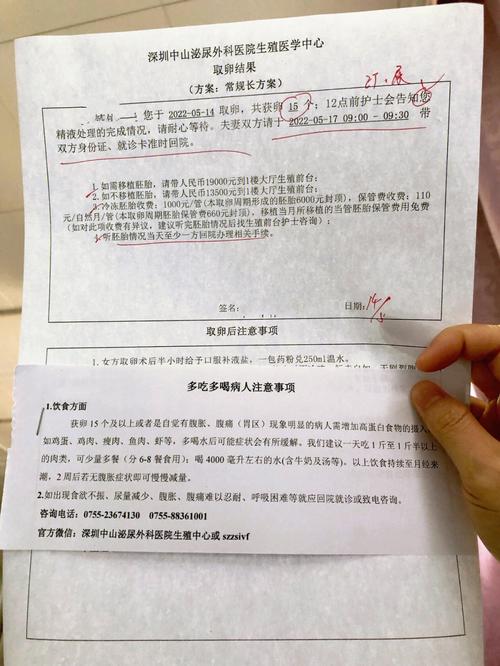 深圳中山泌尿外科医院生殖医学中心
取卵结果
(方案：常规长方案)
您于 2022-05-14 取卵，共获卵 15 个；12点前护士会告知您
精液处理的完成情况，请耐心等待。夫妻双方请于 2022-05-17 09:00 - 09:30 带
双方身份证、就诊卡准时回院。
1.如需移植胚胎，请带人民币19000元到1楼大厅生殖前台；
2.如不移植胚胎，请带人民币13500元到1楼大厅生殖前台；
3.冷冻胚胎收费：1000元/管(本取卵周期形成的胚胎6000元封顶)，保管费收费：110
元/自然月/管(本取卵周期胚胎保管费660元封顶)，移植当月所移植的当管胚胎保管费用免费
(如对此项收费有异议，建议听完胚胎情况后找生殖前台护士咨询)；
4.听胚胎情况当天至少一方回院办理相关手续。
签名：
日期：14/5
取卵后注意事项
1.女方取卵术后半小时给予口服补液盐，一包药粉兑250ml温水。
多吃多喝病人注意事项
1.饮食方面
获卵 15 个及以上或者是自觉有腹胀、腹痛（胃区）现象明显的病人需增加高蛋白食物的摄入
如鸡蛋、鸡肉、瘦肉、鱼肉、虾等，多喝水后可能症状会有所缓解。我们建议一天吃 1 斤至 1 斤半以上
的肉类，可少量多餐（分 6-8 餐食用）；喝 4000 毫升左右的水(含牛奶及汤等)。以上饮食持续至月经来
潮，2 周后若无腹胀症状即可慢慢减量。
2.如出现食欲不振、尿量减少、腹胀、腹痛难以忍耐、呼吸困难等就应回院就诊或致电咨询。
咨询电话：0755-23674130 0755-88361001
官方微信：深圳中山泌尿外科医院生殖中心或 szzsivf